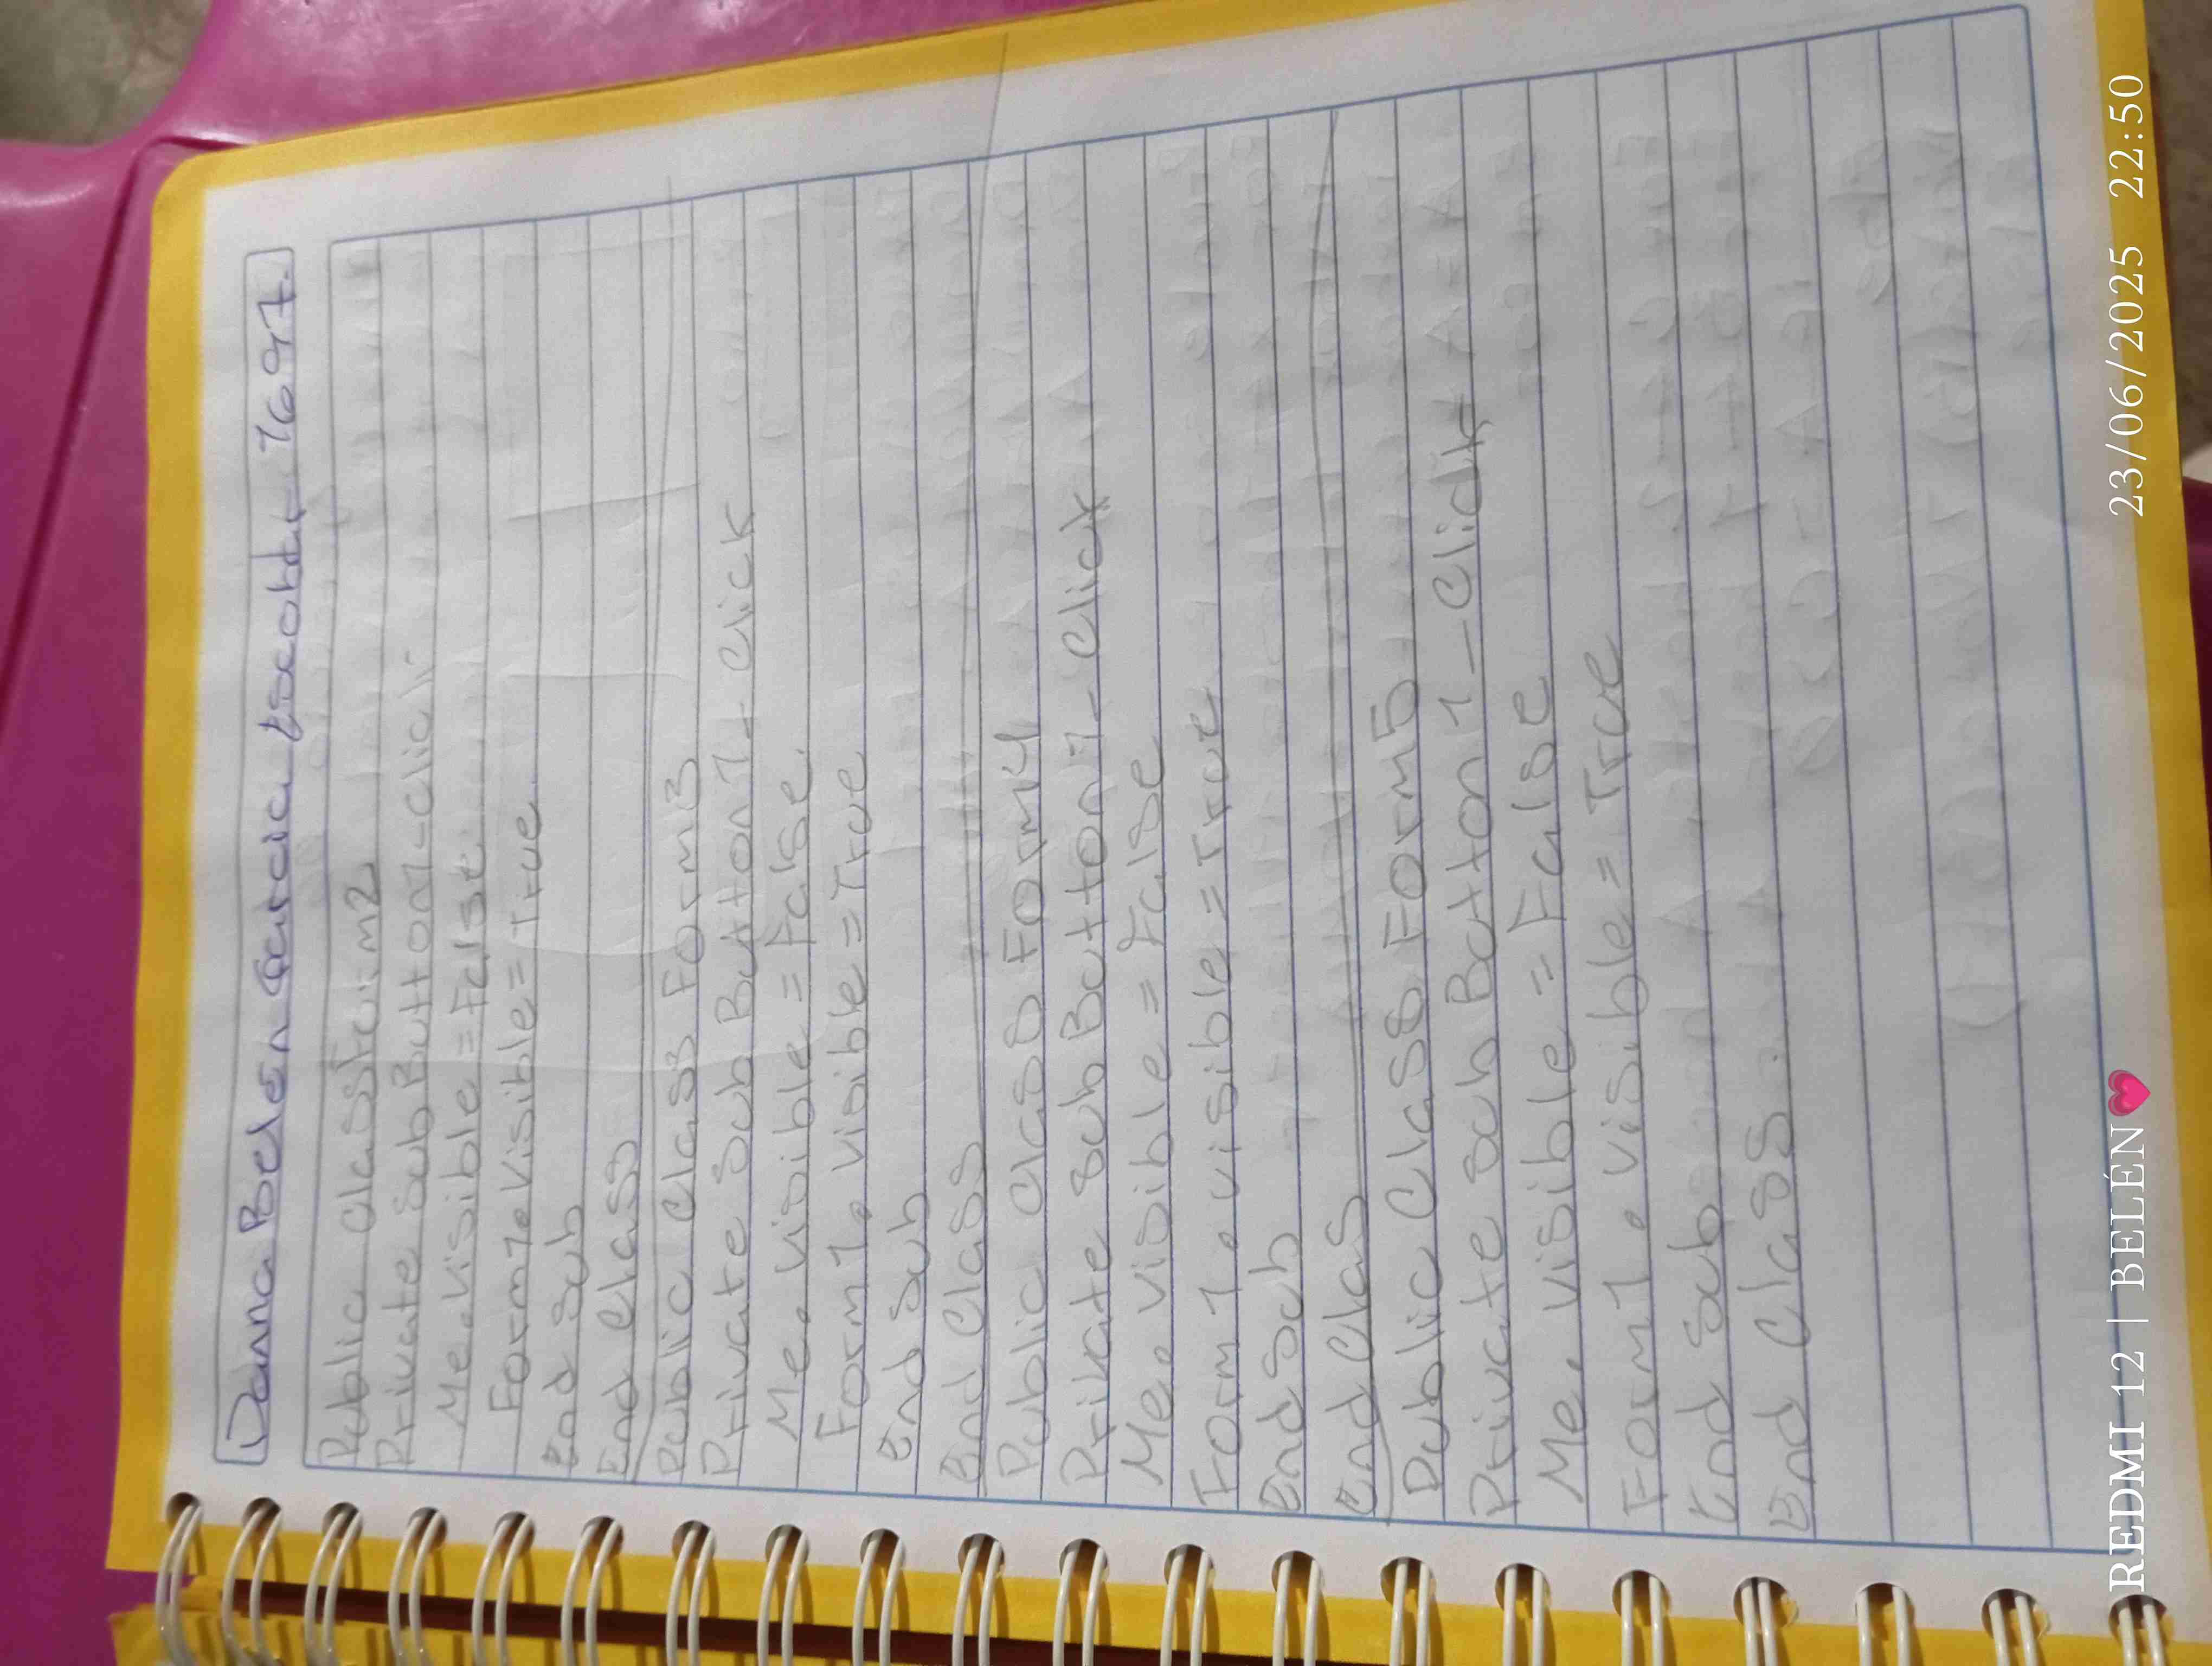 Danna Belen Garcia Escobar 1697
Public Class Form2
Private Sub Button1-Click
Me.Visible = False
Form1.Visible = True
End Sub
End Class
Public Class Form3
Private Sub Button1-Click
Me.Visible = False.
Form1.Visible = True
End Sub
End Class
Public Class Form4
Private Sub Button1-Click
Me.Visible = False
Form1.visible = True
End Sub
End Clas
Public Class Form5
Private Sub Button1-Click
Me.Visible = False
Form1.Visible = True
End Sub
End Class.
REDMI 12 | BELÉN💗 23/06/2025 22:50